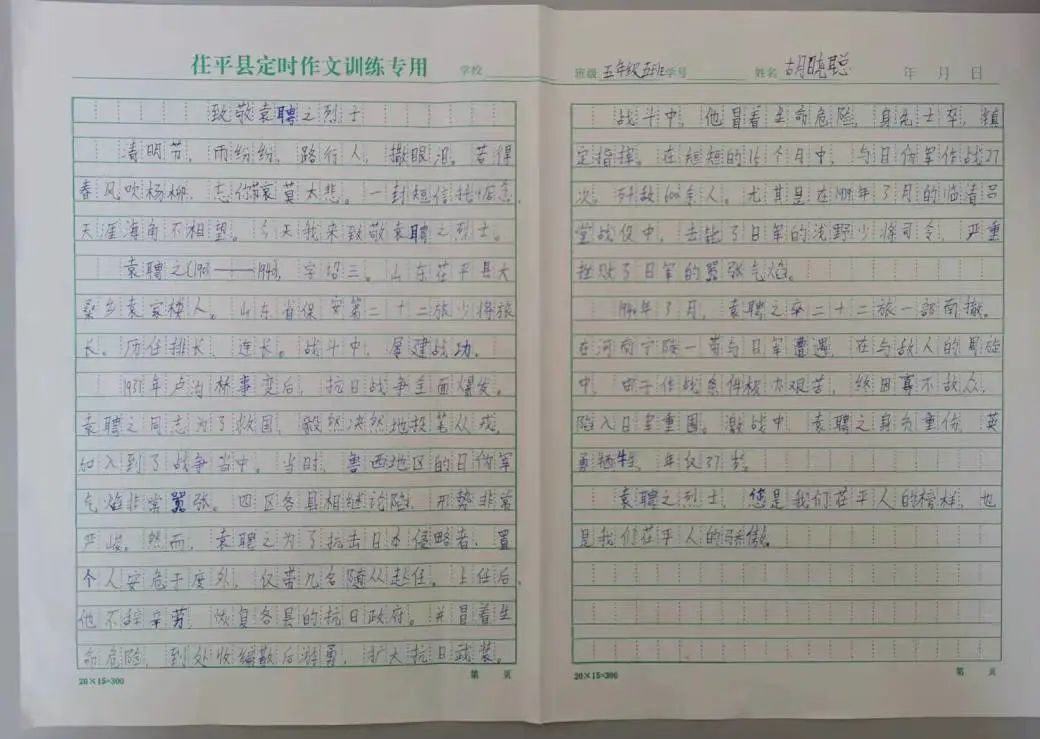 茌平县定时作文训练专用 学校
致敬袁聘之烈士
清明节，雨纷纷，路行人，撒眼泪。苦得
春风吹杨柳，志你哀莫太悲。一封短信托
天涯海角不相望。今天我来致敬袁聘之烈士。
袁聘之(1903——1940)，字绍三。山东茌平县大
桑乡袁家楼人。山东省保安第二十二旅少将旅
长。历任排长、连长。战斗中，屡建战功。
1937年卢沟桥事变后，抗日战争全面爆发。
袁聘之同志为了救国，毅然决然地投笔从戎，
加入到了战争当中。当时，鲁西地区的日伪军
气焰非常嚣张。四区各县相继论陷，形势非常
严峻。然而，袁聘之为了抗击日本侵略者，置
个人安危于度外，仅带几名随从赴任。上任后，
他不辞辛劳，恢复各县的抗日政府。并冒着生
命危险，到处收编散后游勇，扩大抗日武装。
20×15=300 第 页
班级 五年级五班 学号 姓名 胡晓聪 年 月 日
战斗中，他冒着生命危险，身先士卒，镇
定指挥。在短短的16个月中，与日伪军作战27
次。歼敌600余人。尤其是在1939年3月的临清吕
堂战役中，击毙了日军的浅野少将司令，严重
挫败了日军的嚣张气焰。
1940年3月，袁聘之率二十二旅一部南撤。
在河南宁陵一带与日军遭遇，在与敌人的周旋
中，由于作战条件极为艰苦，终因寡不敌众，
陷入日军重围。激战中，袁聘之身负重伤，英
勇牺牲，年仅37岁。
袁聘之烈士，您是我们茌平人的榜样，也
是我们茌平人的骄傲。
20×15=300 第 页